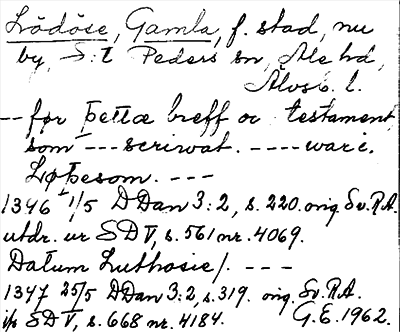 Lödöse, Gamla, f. stad, nu
by, S:t Peders sn, Ale hd,
Älvsb. l.
-- før þettæ breff oc testament
som --- scriwat. ---- war i.
Løþesom. ---
1346 1/5 DDan 3:2, s. 220. orig. Sv.R.A.
utdr. ur SD V, s. 561 nr. 4069.
Datum Luthosie/. ---
1347 25/5 DDan 3:2, s. 319. orig. Sv.R.A.
i/o SD V, s. 668 nr. 4184. G.E. 1962.